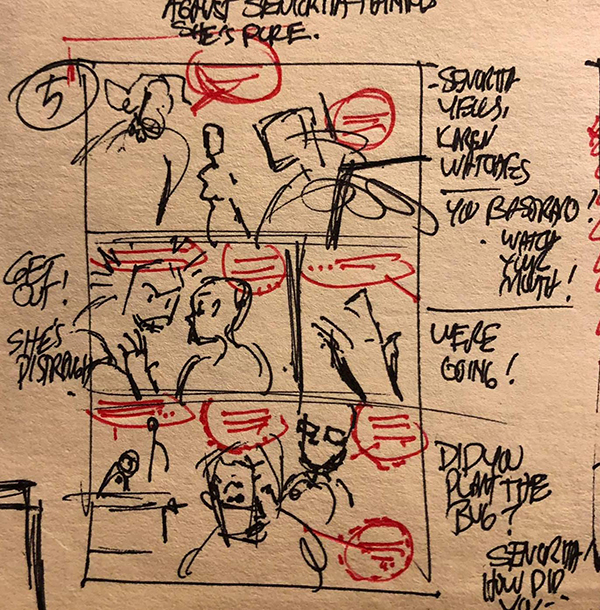 AGAINST SENORITA
SHE'S PURE.
5
- SENORITA
YELLS,
KAREN
WATCHES
YOU BASTARD!
WATCH
YOUR
MOUTH!
GET
OUT!
SHE'S
DISTRAUGHT
WE'RE
GOING!
DID YOU
PLANT THE
BUG?
SENORITA
HOW DID
YOU--